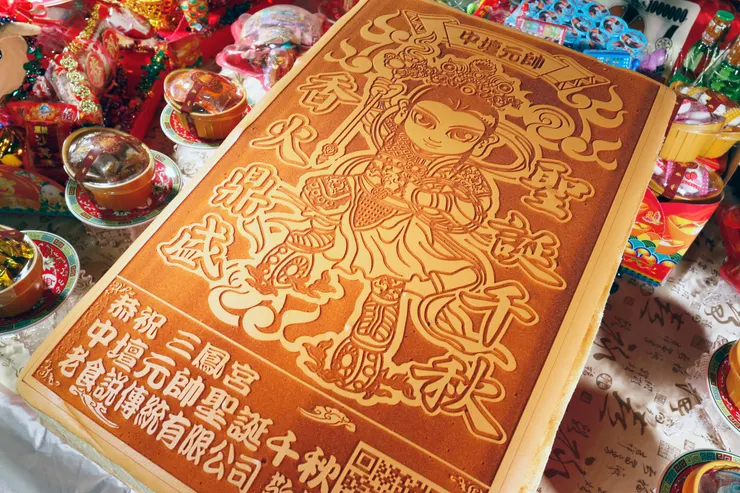 中壇元帥
聖誕千秋
香火鼎盛
恭祝 三鳳宮
中壇元帥聖誕千秋
老食説傳統有限公司